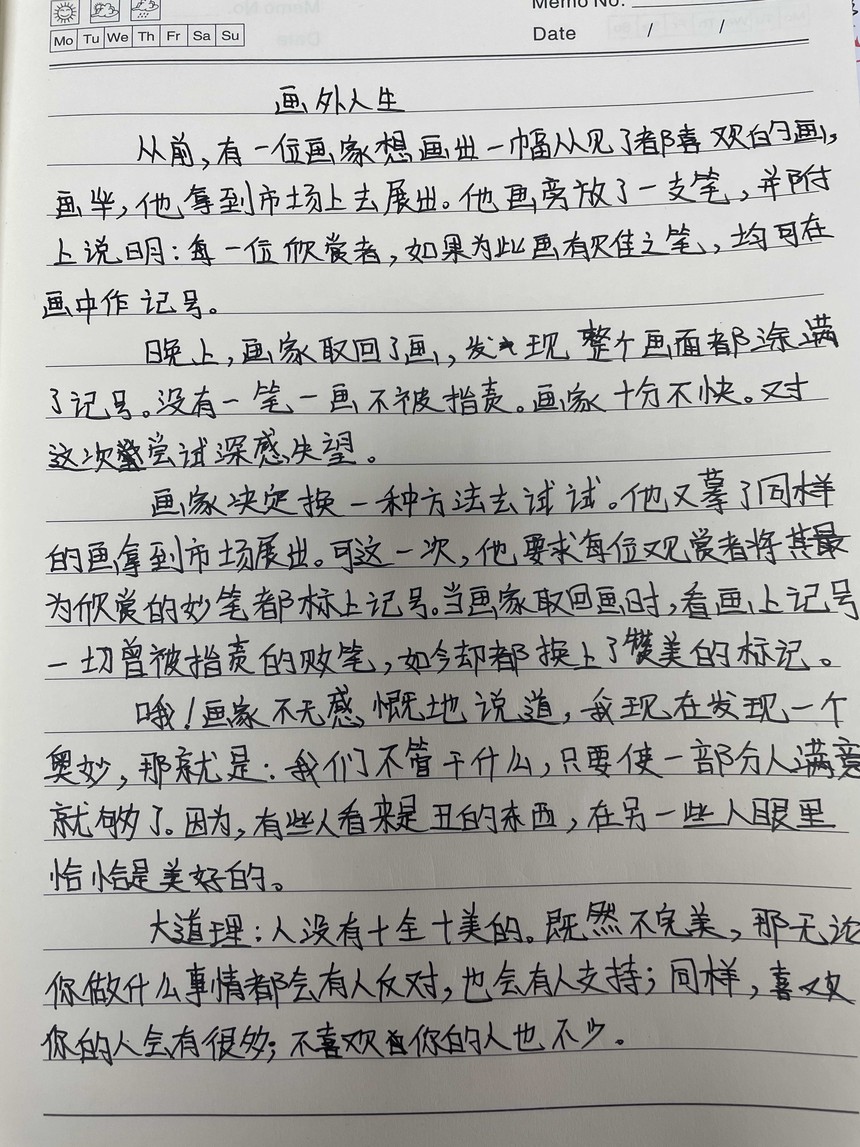 Memo No.
Mo Tu We Th Fr Sa Su
Date / /
画外人生
从前,有一位画家想画出一幅从见了都喜欢的画,
画毕,他拿到市场上去展出。他画旁放了一支笔,并附
上说明:每一位欣赏者,如果为此画有欠佳之笔,均可在
画中作记号。
晚上,画家取回了画,发现整个画面都涂满
了记号。没有一笔一画不被指责。画家十分不快。对
这次尝试深感失望。
画家决定换一种方法去试试。他又摹了同样
的画拿到市场展出。可这一次,他要求每位观赏者将其最
为欣赏的妙笔都标上记号。当画家取回画时,看画上记号
一切曾被指责的败笔,如今却都换上了赞美的标记。
哦!画家不无感慨地说道,我现在发现一个
奥妙,那就是:我们不管干什么,只要使一部分人满意
就够了。因为,有些人看来是丑的东西,在另一些人眼里
恰恰是美好的。
大道理:人没有十全十美的。既然不完美,那无论
你做什么事情都会有人反对,也会有人支持;同样,喜欢
你的人会有很多;不喜欢你的人也不少。